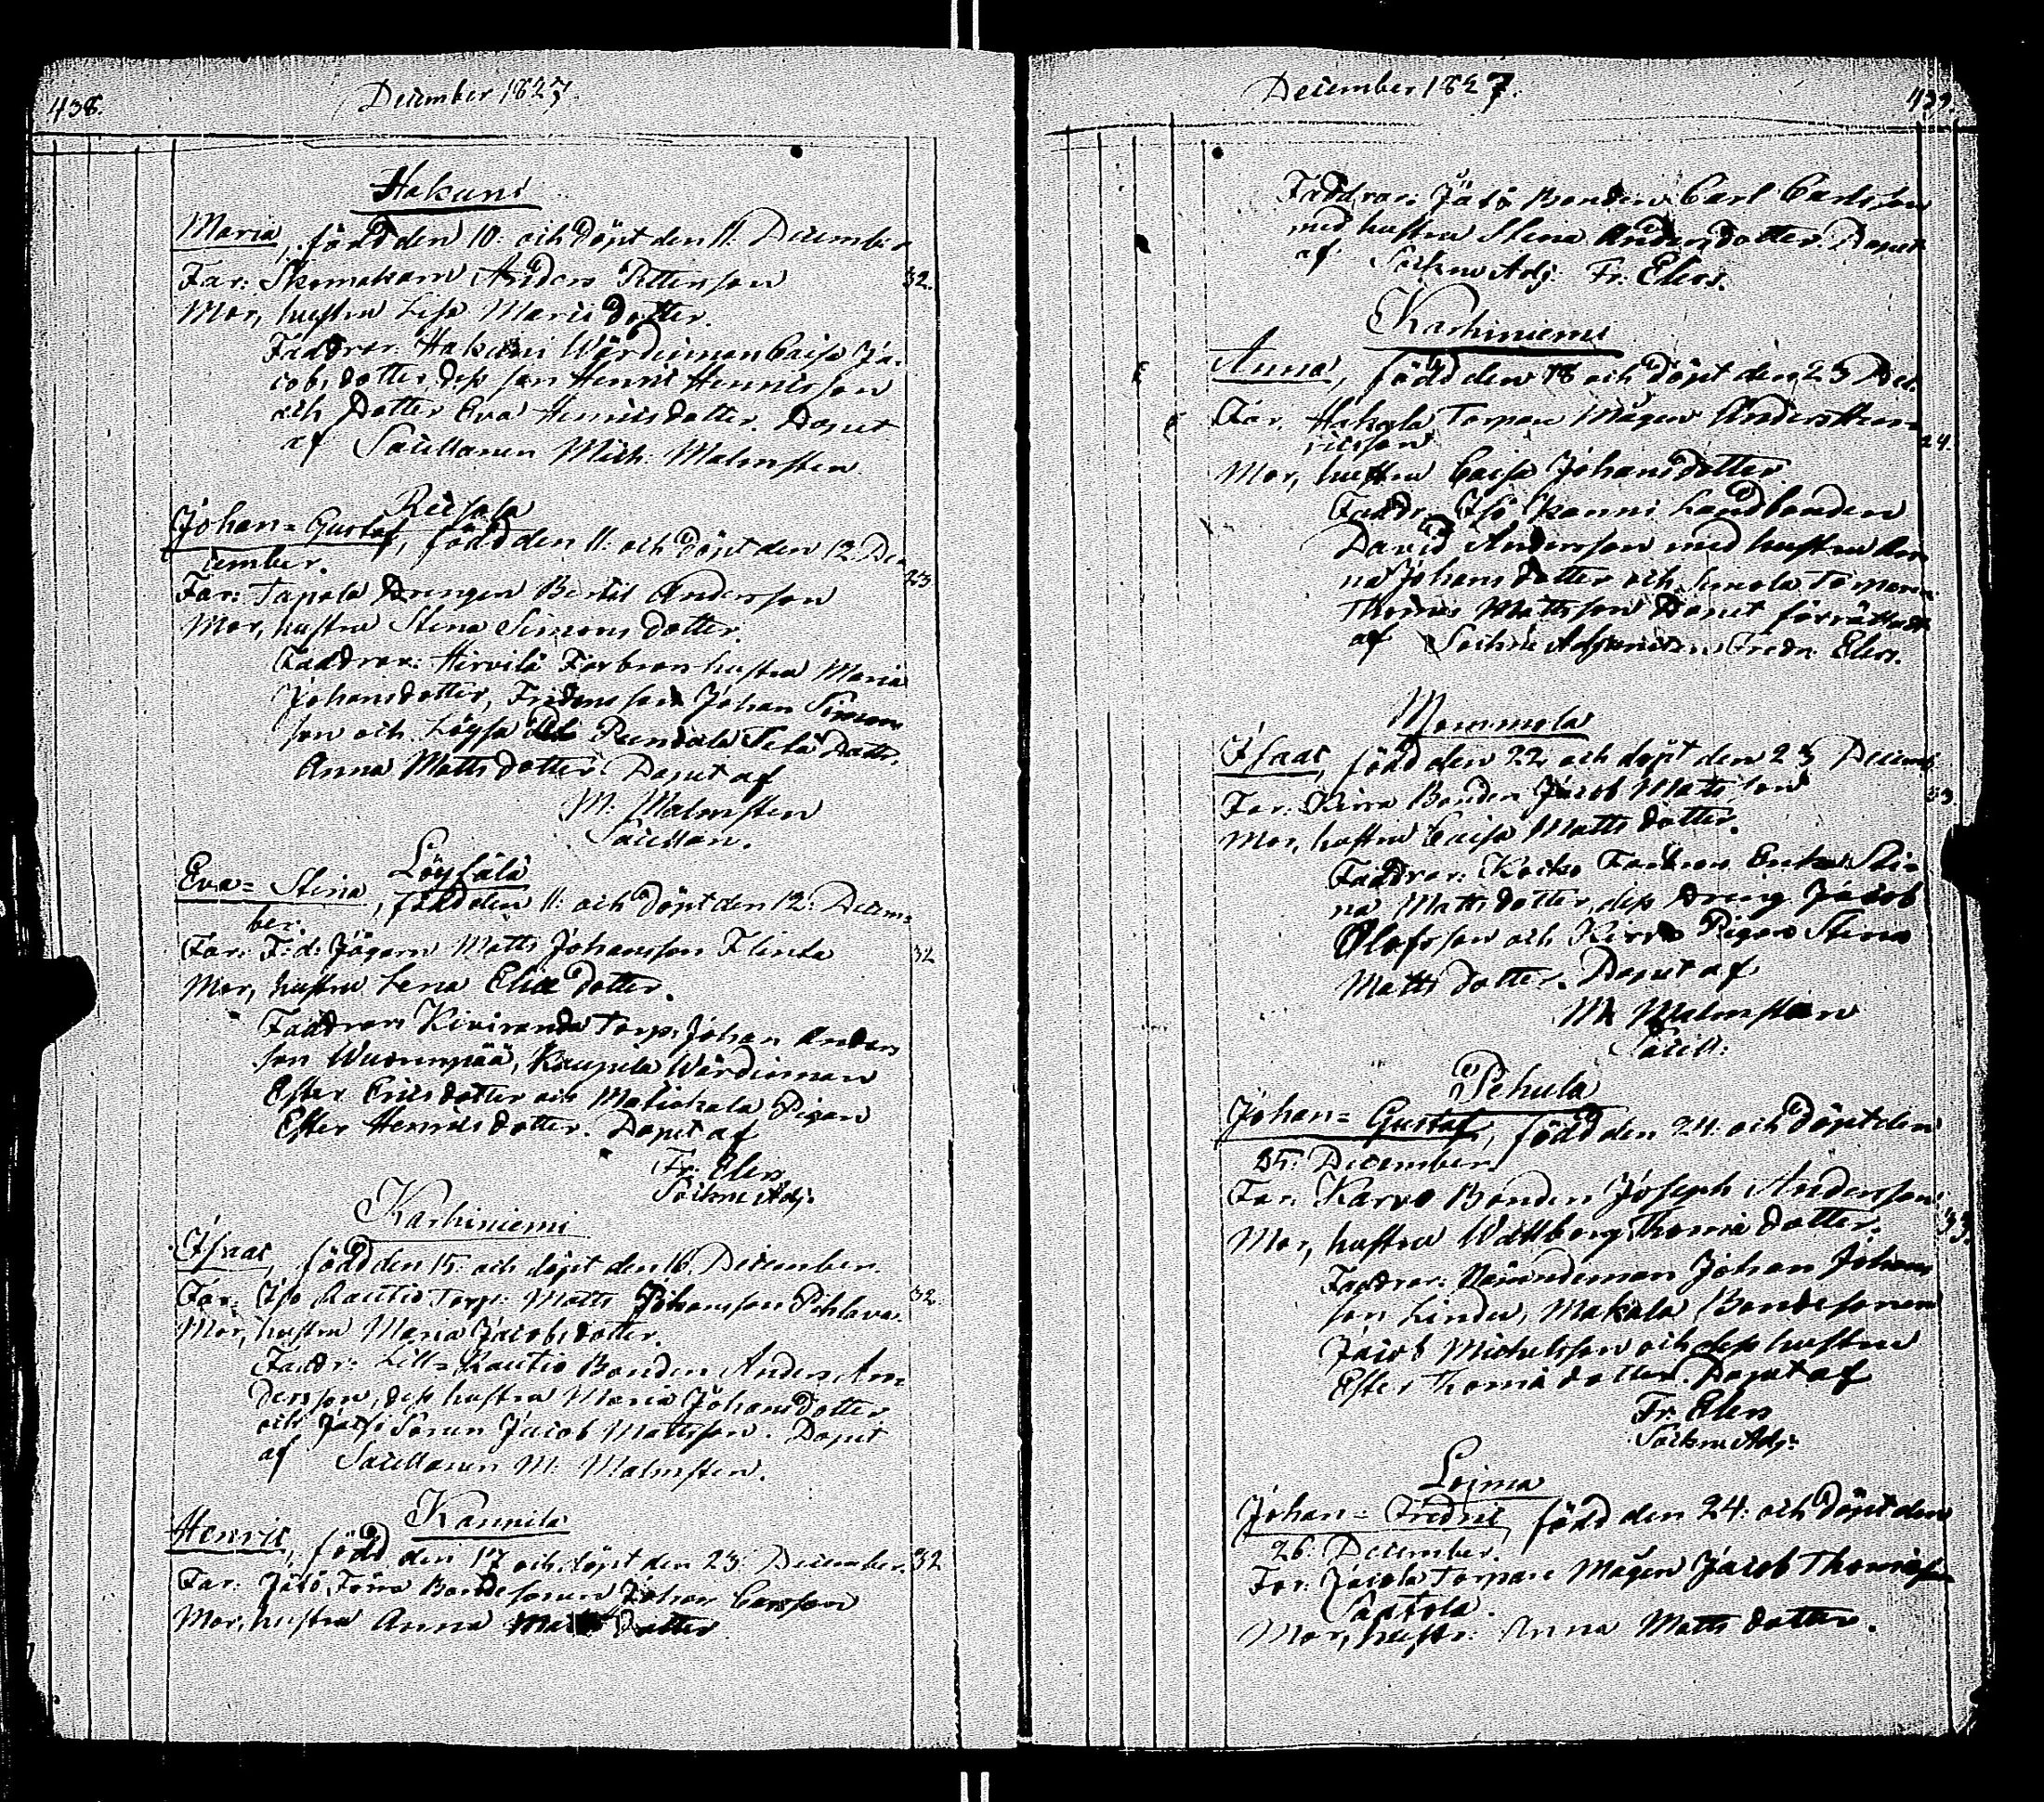 438.
December 1827.
Hakuni
Maria, född den 10: och döpt den 11: December
Far: Skomakarn Anders Pettersson 32.
Mor, hustru Lisa Mariædotter.
Faddrar: Hakuni Wärdinnan Caisa Ja-
cobsdotter, dess son Henric Henricsson
och Dotter Eva Henricsdotter. Döpet
af Sacellanen Mich: Malmsten
Reisola
Johan=Gustaf, född den 11: och döpt den 12 De-
cember. 23
Far: Tapola Drengen Bertil Andersson
Mor, hustru Stina Simonsdotter.
Faddrar: Hirvilä Farbrors hustru Maria
Johansdotter, Johan Simons
son och
Anna Mattsdotter. Döpet af
M: Malmsten
Sacellan.
Löysälä
Eva=Stina, född den 11: och döpt den 12: Decem=
ber.
Far: F:d: Jägarn Matts Johansson Flinta 32
Mor, hustru Lena Eliædotter.
Faddrar: Kiviranda Torp: Johan Anders
son Wuorenpää, Kaupila Wärdinnan
Ester Ericsdotter och Matiskala Pigan
Ester Henricsdotter. Döpet af
Fr: Elers
Sockne Adj:
Karhiniemi
Isaac, född den 15: och döpt den 16 December.
Far: Iso Rautio Torp: Matts Johansson Pihlava. 32.
Mor, hustru Maria Jacobsdotter.
Faddr: Lill=Rautio Bonden Anders An=
dersson, dess hustru Maria Johansdotter
och Sonen Jacob Mattsson. Döpet
af Sacellanen M: Malmsten.
Kannila
Henric, född den 17 och döpt den 23: December. 32
Far: Jäsö Bondesonen Johan Carlsson
Mor, hustru Anna Mattsdotter
December 1827.
439.
Faddrar: Jäsö Bonden Carl Carlsson
med hustru Stina Andersdotter. Döpet
af Sockne Adj: Fr: Elers.
Karhiniemi
Anna, född den 18 och döpt den 23 Dec.
Far. Hakala Torpare Mågen Anders Hen=
ricsson 24.
Mor, hustru Caisa Johansdotter.
Faddr: Iso Kanni Landbonden
David Andersson med hustru An
na Johansdotter och Torparen
Thomas Mattsson Döpet förrättadt
af Sockne Adjuncten Fredr: Elers.
Mommola
Isaac, född den 22 och döpt den 23 Decemb
Far: Kirra Bonden Jacob Mattsson 33.
Mor, hustru Caisa Mattsdotter.
Faddrar: Kocko Enka Sti=
na Mattsdotter, dess Dreng Jacob
Olofsson och Kirra Pigan Stina
Mattsdotter. Döpet af
M Malmsten
Sacell:
Pehula
Johan=Gustaf, född den 24: och döpt den
25: December.
Far. Karvo Bonden Joseph Andersson
Mor, hustru Wallborg Thomædotter. 33.
Faddrar: Nämndeman Johan Johans
son Linder, Makala Bondesonen
Jacob Michelsson och dess hustru
Ester Thomædotter. Döpet af
Fr. Elers
Sockne Adj:
Loima
Johan=Fredric född den 24: och döpt den
26: December.
Far: Jacola Torpare Mågen Jacob Thomasson
Santola.
Mor, hustr: Anna Mattsdotter.